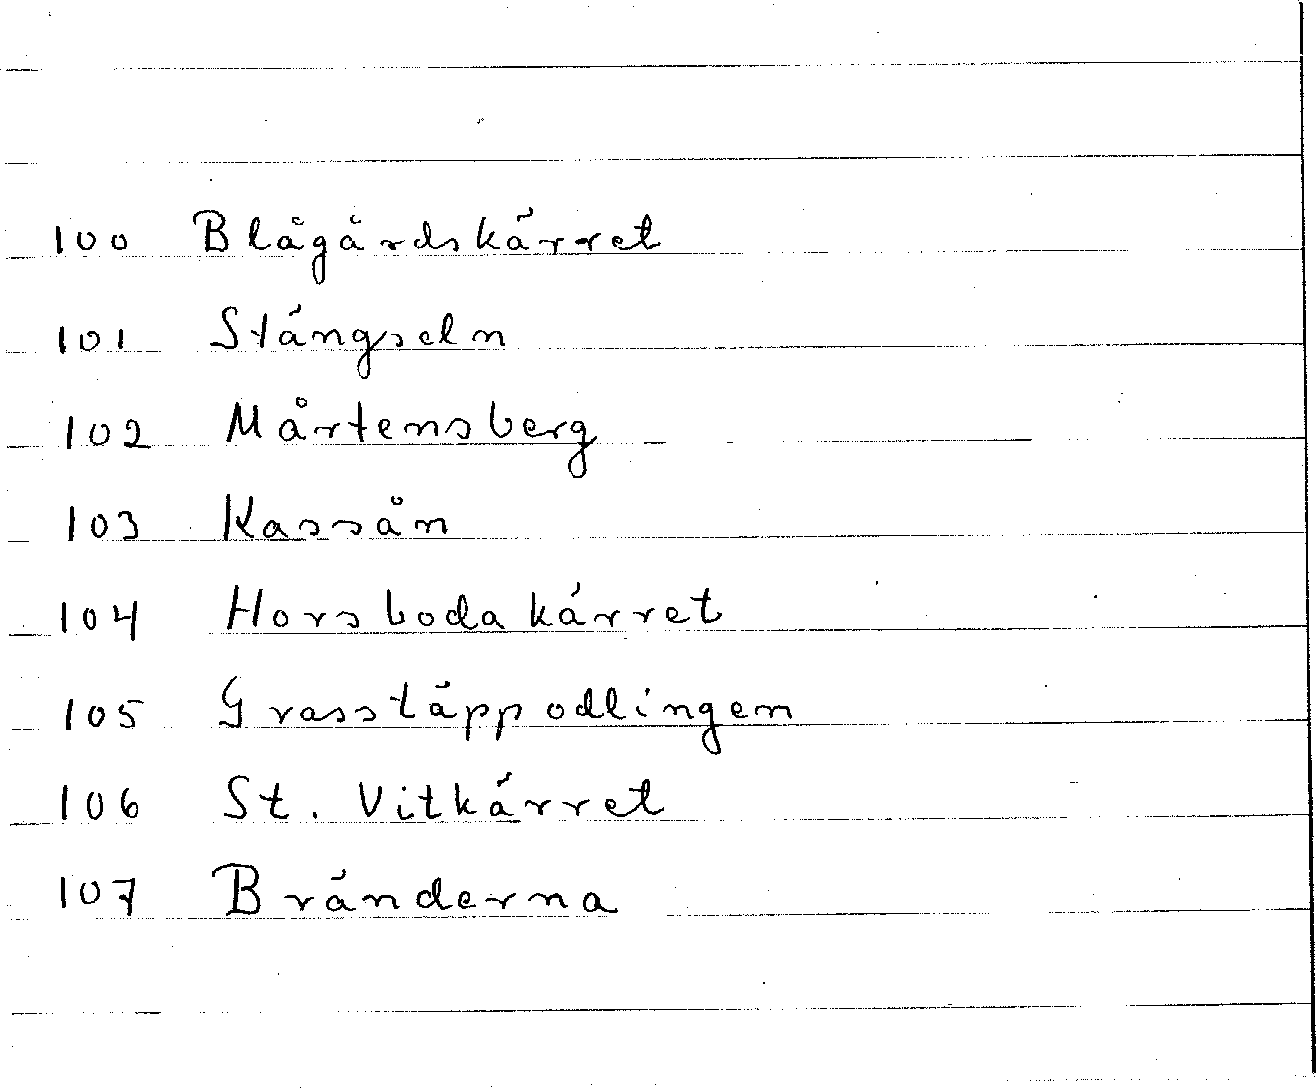 100 Blågårdskärret
101 Stängseln
102 Mårtensberg
103 Kassån
104 Horsbodakärret
105 Grasstäppodlingen
106 St. Vitkärret
107 Bränderna